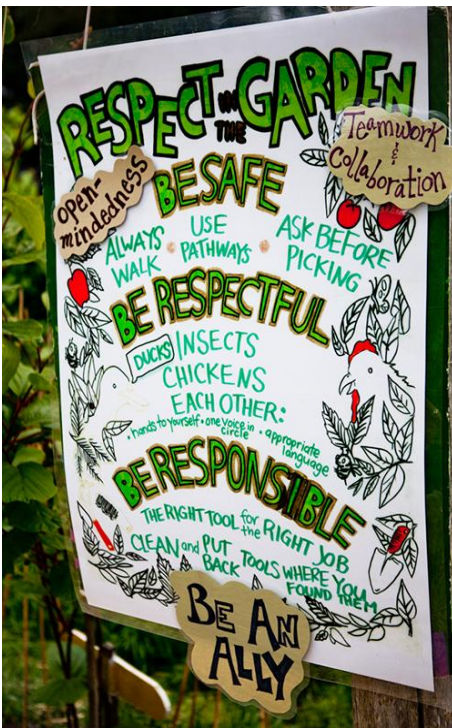 RESPECT IN THE GARDEN
Teamwork
&
Collaboration
open-
mindedness
BE SAFE
ALWAYS
WALK
• USE
PATHWAYS •
ASK BEFORE
PICKING
BE RESPECTFUL
DUCKS INSECTS
CHICKENS
EACH OTHER:
• hands to yourself • one voice in
circle • appropriate
language
BE RESPONSIBLE
THE RIGHT TOOL for
the RIGHT JOB
CLEAN and PUT
BACK TOOLS WHERE YOU
FOUND THEM
BE AN
ALLY